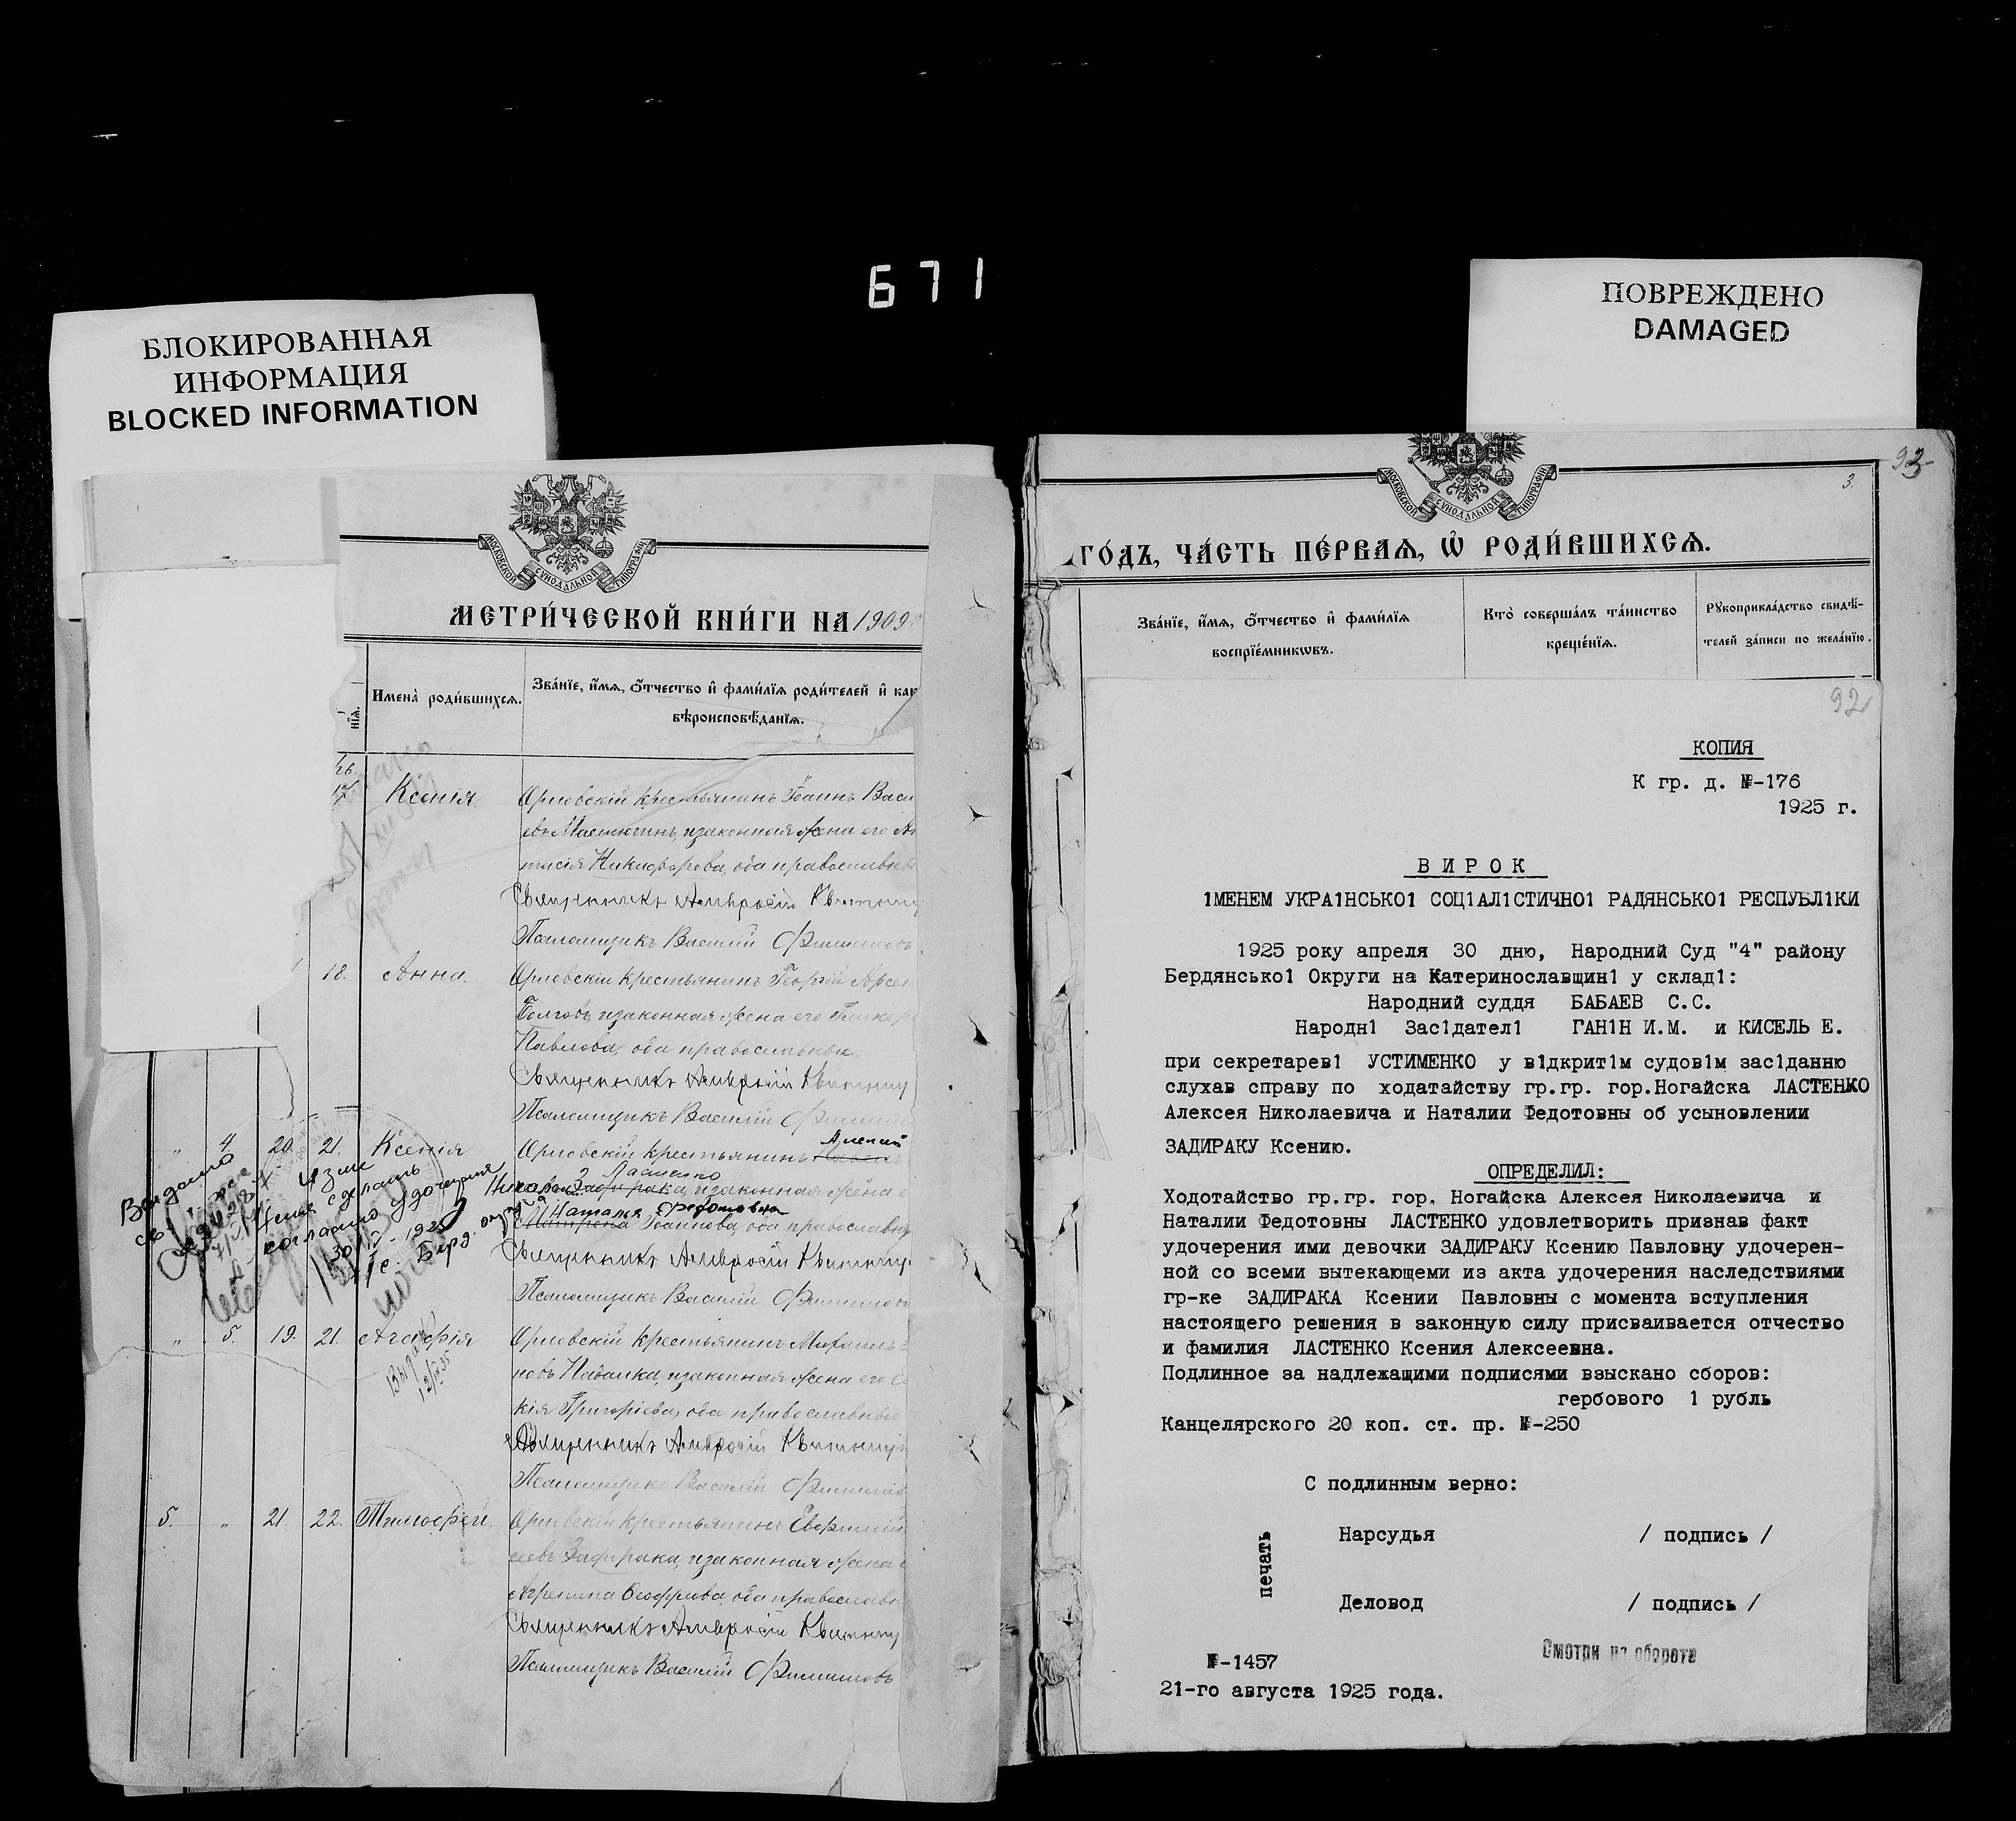 671
БЛОКИРОВАННАЯ
ИНФОРМАЦИЯ
BLOCKED INFORMATION
ПОВРЕЖДЕНО
DAMAGED
МОСКОВСКОЙ СѴНОДАЛЬНОЙ ТИПОГРАФІИ
МЕТРИ́ЧЕСКОЙ КНИ́ГИ НА 1909
нїѧ.
Имена̀ роди́вшихсѧ.
Зва́нїе, и҆́мѧ, ѻ҆́тчество и҆ фами́лїѧ роди́телей и҆ как
вѣроисповѣ́данїѧ.
17 Ксенія. Орловскій крестьянинъ Іоаннъ Васи
евъ Мастюгинъ, и законная жена его
тасія Никифорова, оба православны
Священникъ Амвросій
Псаломщикъ Василій Филиппов
18. Анна. Орловскій крестьянинъ Георгій Арсен
Болговъ, и законная жена его Гликер
Павлова, оба православные.
Священникъ Амвросій
Псаломщикъ Василій
" 4. 20 21. Ксенія Орловскій крестьянинъ Алексей
Ластенко
Задирака, и законная жена
Наталья Федотовна
Матрена Іоаннова, оба православны
Священникъ Амвросій
Псаломщикъ Василій Филиппов
Выдано
сделать
согласно удочерения
30/IV-1925
" 5. 19. 21. Агафія Орловскій крестьянинъ
и законная жена его
кія Григоріева, оба православные
Священникъ Амвросій
Псаломщикъ Василій
5. " 21 22. Тимофей. Орловскій крестьянинъ Евфимій
еевъ Задирака, и законная жена
Агрепина оба православн
Священникъ Амвросій
Псаломщикъ Василій Филипповъ
93
3.
МОСКОВСКОЙ СѴНОДАЛЬНОЙ ТИПОГРАФІИ
ГО́ДЪ, ЧА́СТЬ ПЕ́РВАѦ, Ѡ҆ РОДИ́ВШИХСѦ.
Зва́нїе, и҆́мѧ, ѻ҆́тчество и҆ фами́лїѧ
воспрїе́мникѡвъ.
Кто̀ соверша́лъ та́инство
креще́нїѧ.
Рꙋкоприкла́дство свидѣ́-
телей за́писи по жела́нїю.
92
КОПИЯ
К гр. д. №-176
1925 г.
В И Р О К
1МЕНЕМ УКРА1НСЬКО1 СОЦ1АЛ1СТИЧНО1 РАДЯНСЬКО1 РЕСПУБЛ1КИ
1925 року апреля 30 дню, Народний Суд "4" району
Бердянсько1 Округи на Катеринославщин1 у склад1:
Народний суддя БАБАЕВ С.С.
Народн1 Зас1дател1 ГАН1Н И.М. и КИСЕЛЬ Е.
при секретарев1 УСТИМЕНКО у в1дкрит1м судов1м зас1данню
слухав справу по ходатайству гр.гр. гор.Ногайска ЛАСТЕНКО
Алексея Николаевича и Наталии Федотовны об усыновлении
ЗАДИРАКУ Ксению.
ОПРЕДЕЛИЛ:
Ходотайство гр.гр. гор. Ногайска Алексея Николаевича и
Наталии Федотовны ЛАСТЕНКО удовлетворить признав факт
удочерения ими девочки ЗАДИРАКУ Ксению Павловну удочерен-
ной со всеми вытекающеми из акта удочерения наследствиями
гр-ке ЗАДИРАКА Ксении Павловны с момента вступления
настоящего решения в законную силу присваивается отчество
и фамилия ЛАСТЕНКО Ксения Алексеевна.
Подлинное за надлежащими подписями взыскано сборов:
гербового 1 рубль
Канцелярского 20 коп. ст. пр. №-250
С подлинным верно:
печать
Нарсудья / подпись /
Деловод / подпись /
Смотри на обороте
№-1457
21-го августа 1925 года.